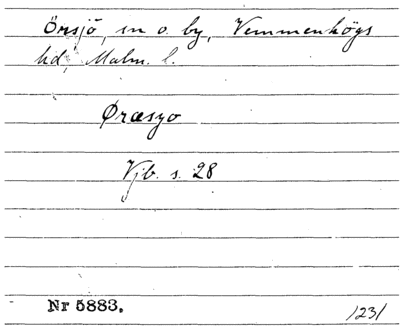 Örsjö, sn o. by, Vemmenhögs
hd, Malm. l.
Øræsyo
Vjb. s. 28
Nr 5883.
1231